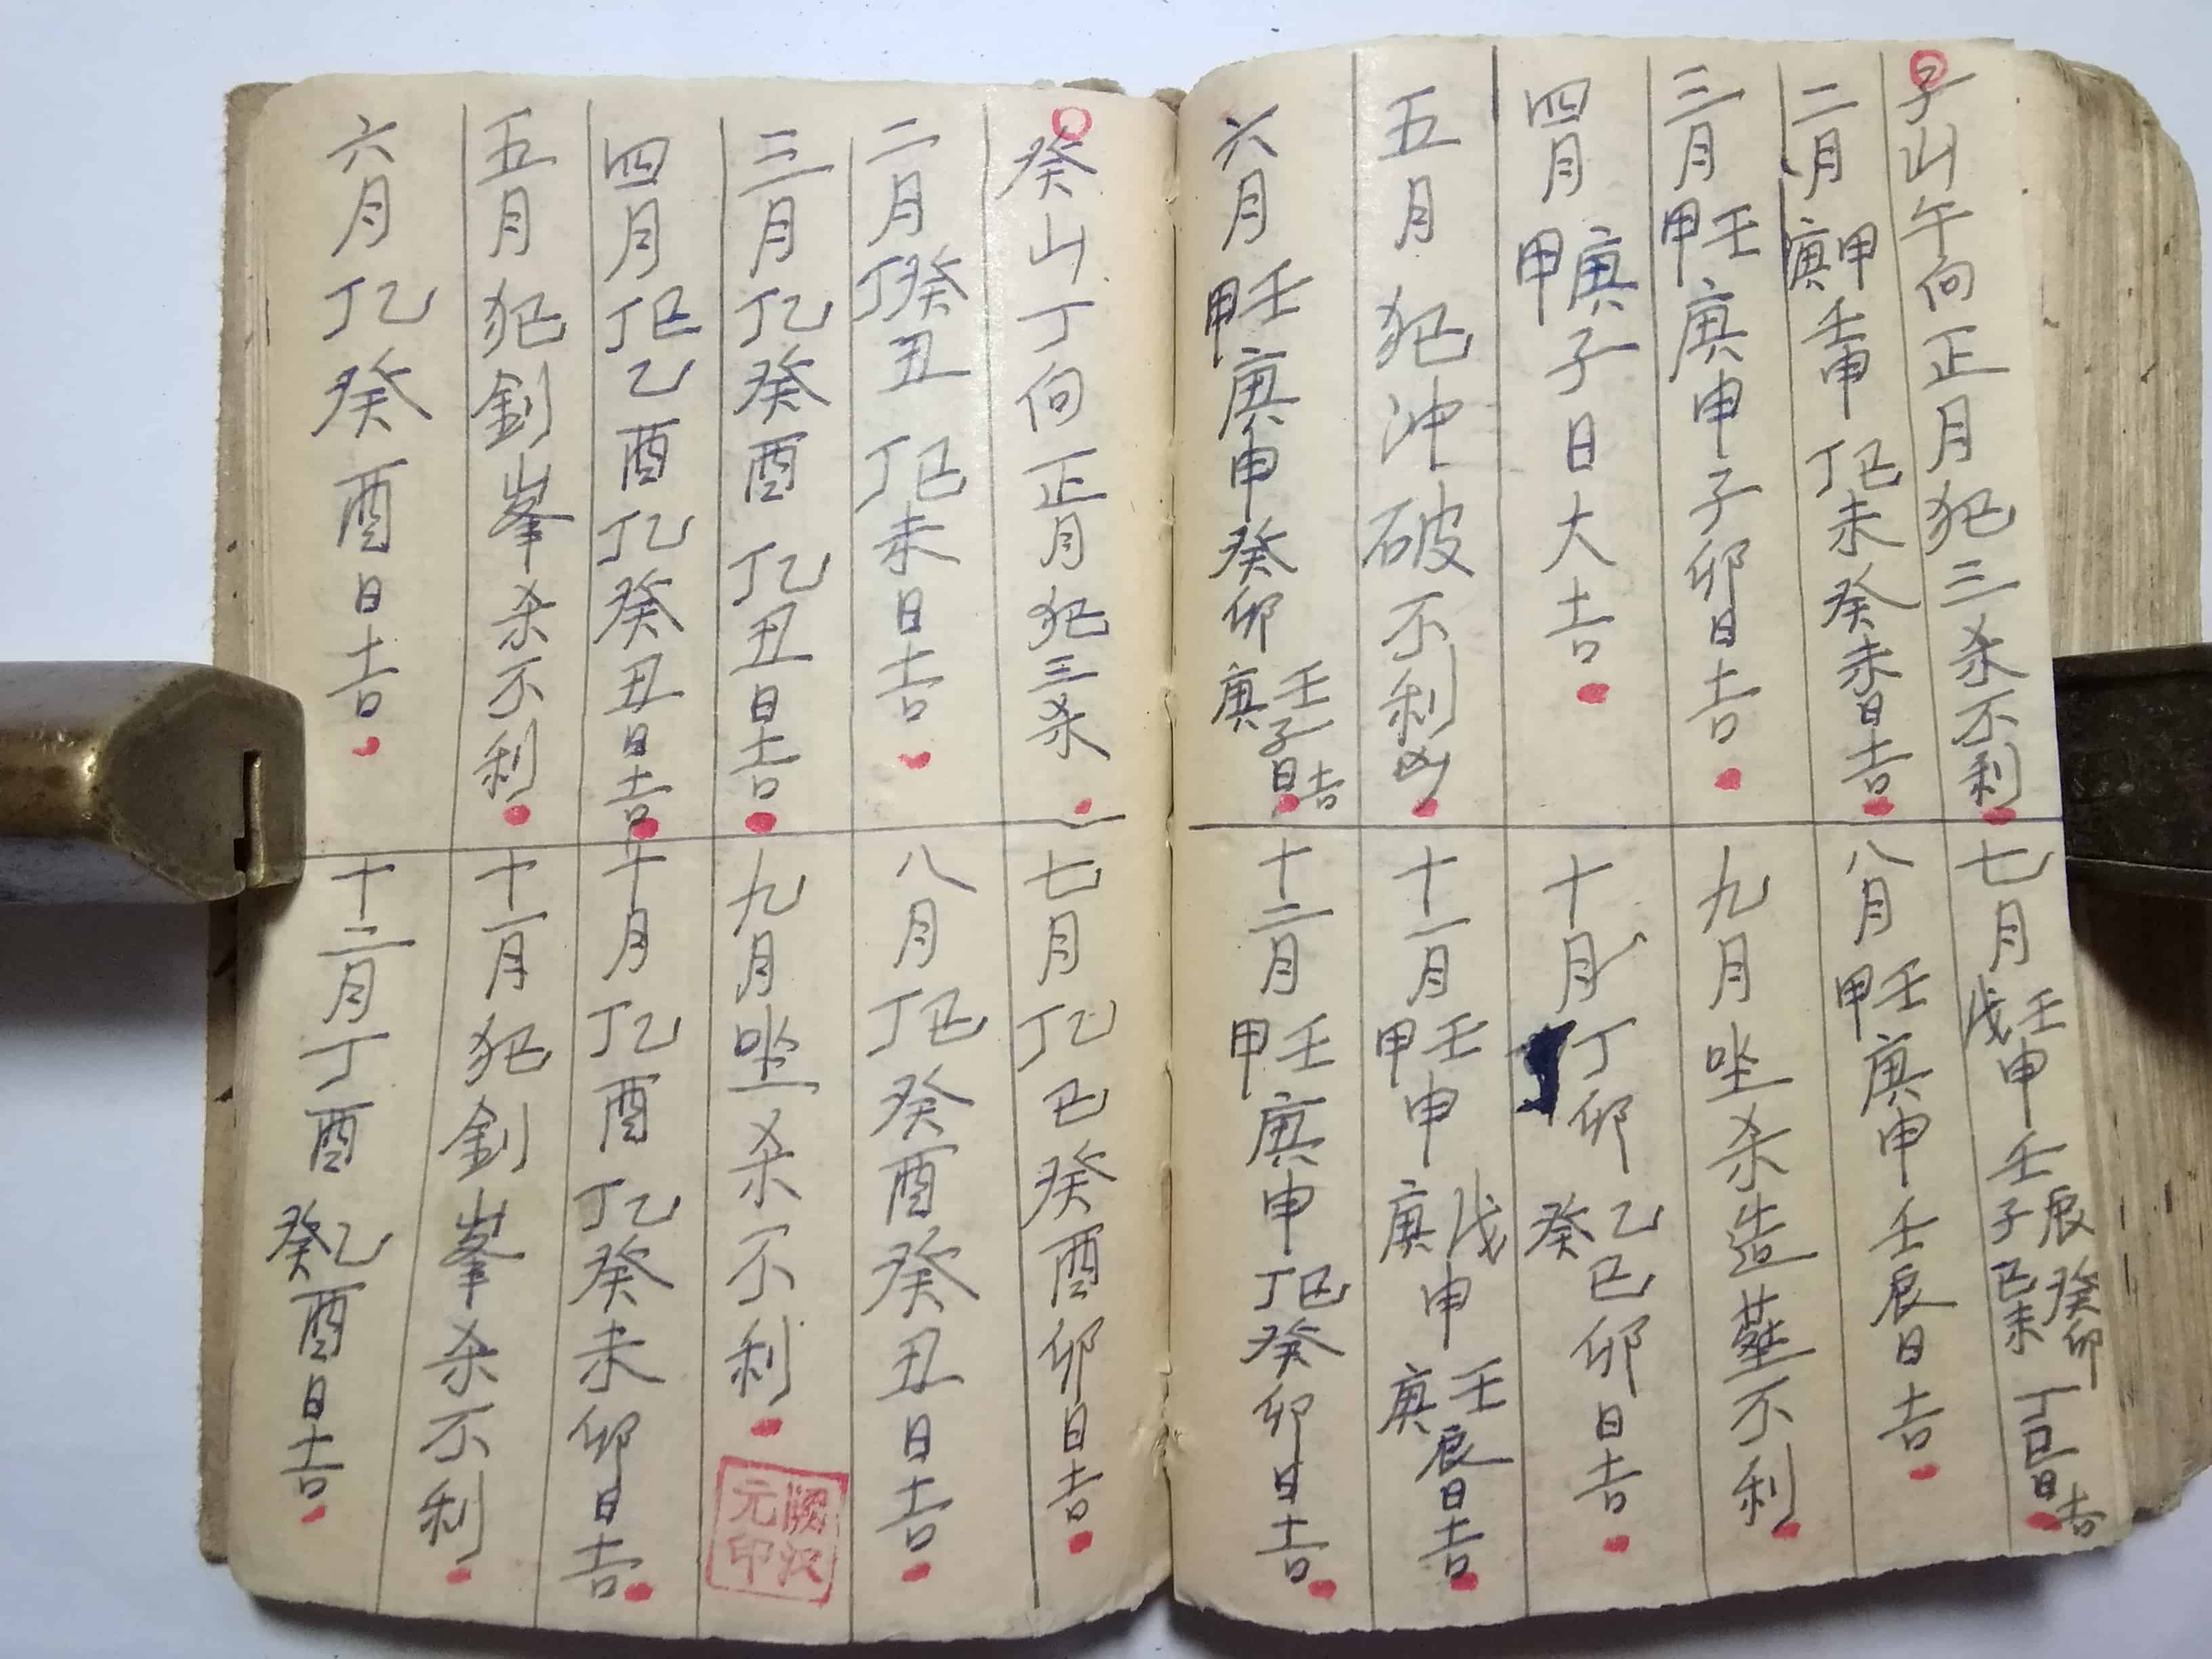 子山午向正月犯三杀不利
二月甲庚壬申丁己未癸未日吉
三月壬甲庚申子卯日吉
四月庚甲子日大吉
五月犯沖破不利凶
六月壬甲庚申癸卯壬庚子日吉
七月壬戊申壬辰子癸卯己未丁巳日吉
八月壬甲庚申壬辰日吉
九月坐杀造葬不利
十月丁卯乙癸巳卯日吉
十一月壬甲申戊庚申壬庚辰日吉
十二月壬甲庚申丁巳癸卯日吉
癸山丁向正月犯三杀
二月癸丁丑丁己未日吉
三月乙丁癸酉乙丁丑日吉
四月己丁乙酉乙丁癸丑日吉
五月犯劍峯杀不利
六月乙丁癸酉日吉
七月乙丁巳癸酉卯日吉
八月己丁癸酉癸丑日吉
九月坐杀不利
十月乙丁酉乙丁癸未卯日吉
十一月犯劍峯杀不利
十二月丁酉乙癸酉日吉